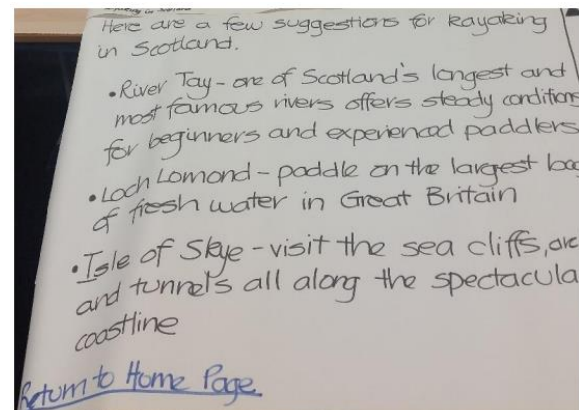 Here are a few suggestions for kayaking
in Scotland.
• River Tay - one of Scotland's longest and
most famous rivers offers steady conditions
for beginners and experienced paddlers
• Loch Lomond - paddle on the largest
of fresh water in Great Britain
• Isle of Skye - visit the sea cliffs,
and tunnels all along the spectacula
coastline
Return to Home Page